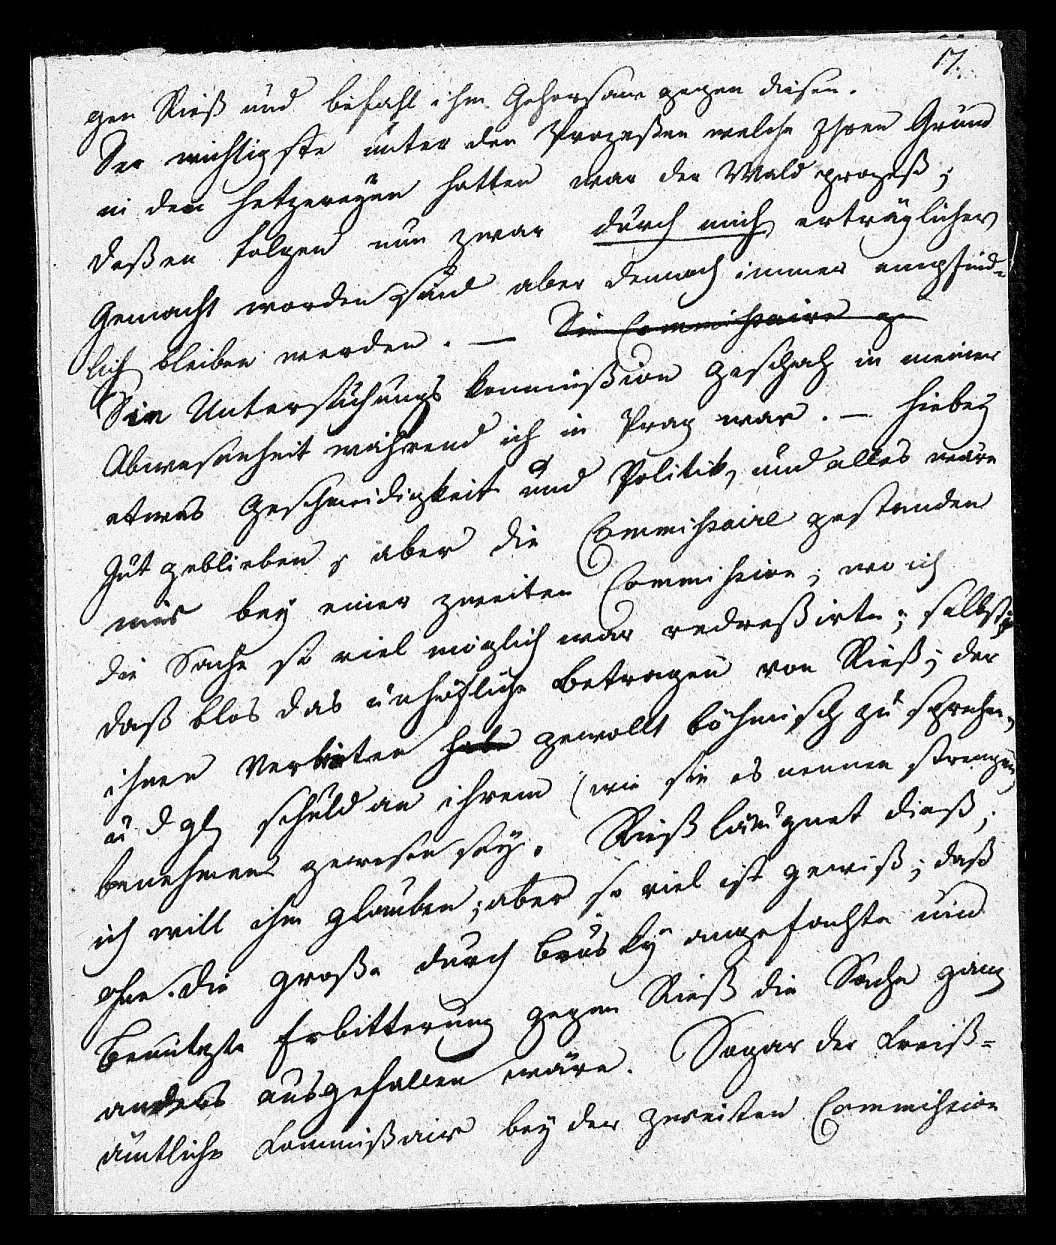 17.
gen Rieß und befahl ihm Gehorsam gegen diesen.
Der wichtigste unter den Prozeßen welche Ihren Grund
in den Hetzereyen hatten war der Waldprozeß;
deßen Folgen nun zwar durch mich erträglicher
Gemacht worden sind aber dennoch immer empfind-
lich bleiben werden. — Die Commissaire ge
Die Untersuchungs kommißion geschah in meiner
Abwesenheit während ich in Prag war. — Hiebey
etwas Geschmeidigkeit und Politik, und alles wäre
Gut geblieben, aber die Commissaire gestanden
mir bey einer zweiten Commission, wo ich
die Sache so viel möglich war redreßirte; selbst,
daß blos das unhöfliche Betragen von Rieß; der
ihnen Verbieten habe gewollt böhmisch zu sprechen,
u dgl schuld an ihrem (wie sie es nennen strengen)
benehmens gewesen sey. Rieß läugnet dieß;
ich will ihm glauben; aber so viel ist gewiß; daß
ohne die große durch angefachte und
Benutzte Erbitterung gegen Rieß die Sache ganz
anders ausgefallen wäre. Sogar der Kreiß-
ämtliche Kommißair bey der zweiten Commission